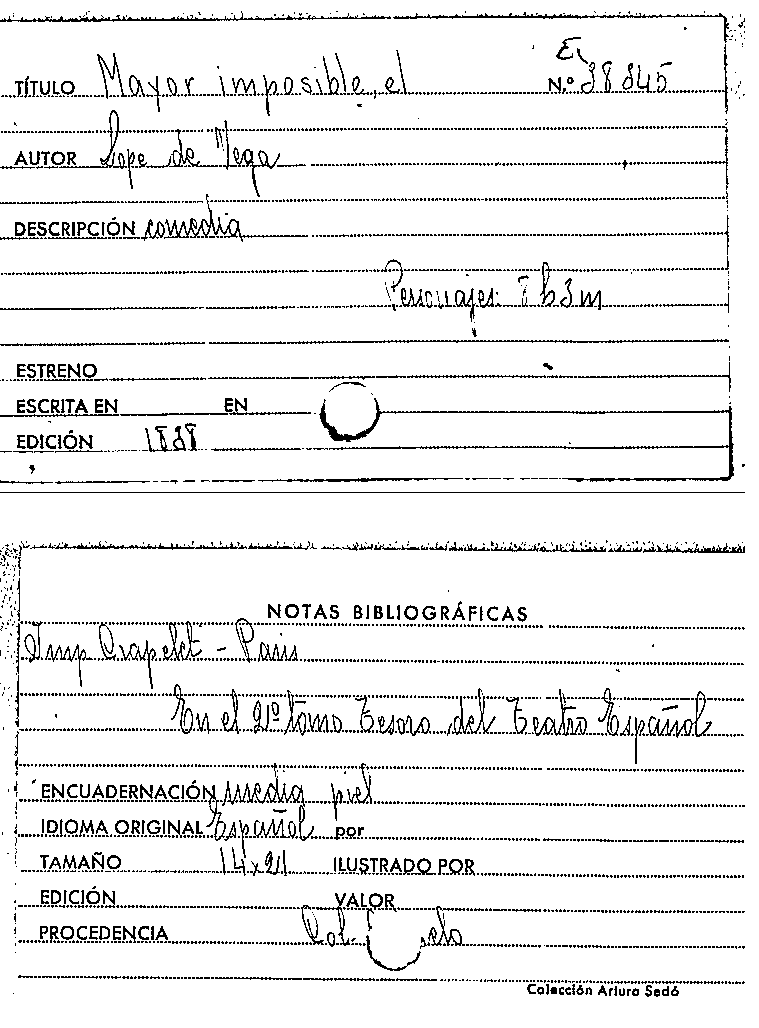 TÍTULO Mayor imposible, el N.º 38845
AUTOR Lope de Vega
DESCRIPCIÓN comedia
Personajes: 8 h 3 m
ESTRENO
ESCRITA EN EN
EDICIÓN 1838
NOTAS BIBLIOGRÁFICAS
Imp Crapelet - Paris
En el 2º tomo Tesoro del Teatro Español
ENCUADERNACIÓN media piel
IDIOMA ORIGINAL Español por
TAMAÑO 14 x 21 ILUSTRADO POR
EDICIÓN VALOR
PROCEDENCIA Col.
Colección Arturo Sedó